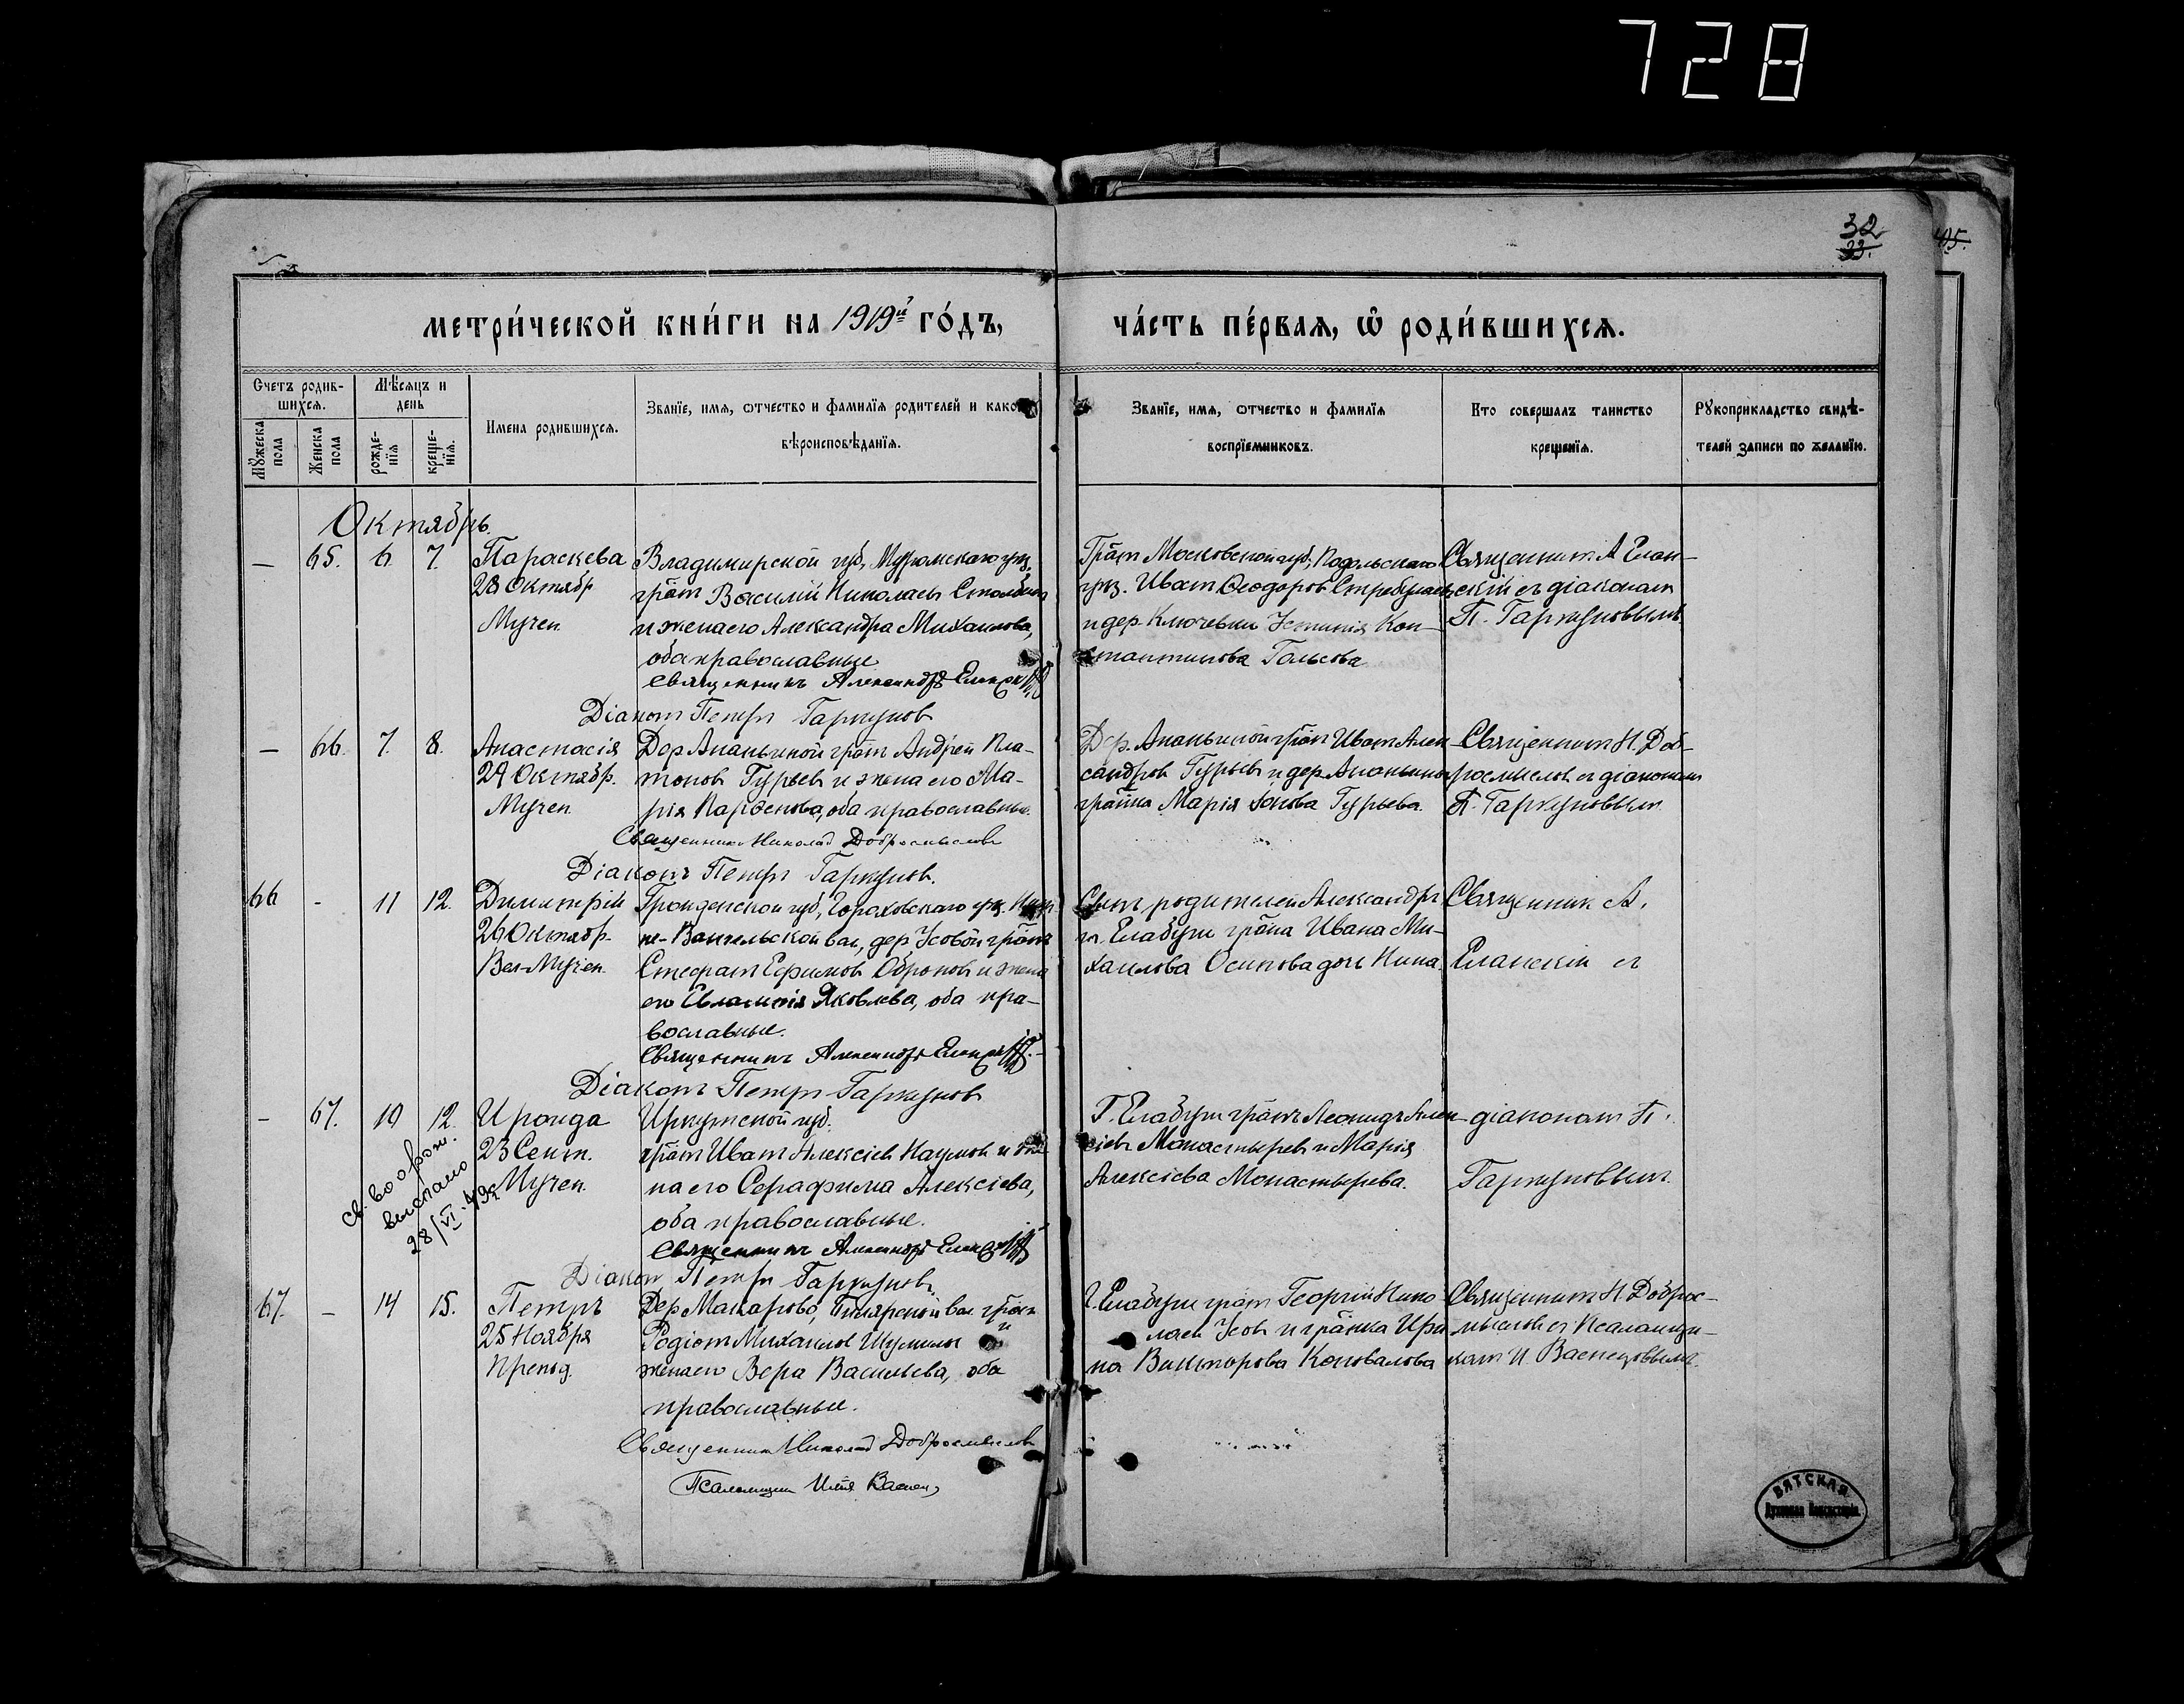 728
32
33.
45.
МЕТРИ́ЧЕСКОЙ КНИ́ГИ НА 1919й ГО́ДЪ,
ЧА́СТЬ ПЕ́РВАЯ, Ѿ РОДИ́ВШИХСЯ.
Счетъ родив-
шихся.
Мѣсяцъ и
день
Мꙋжеска
пола
Женска
пола
рожде-
нїя
креще-
нїя.
Имена родившихся.
Званїе, имя, ѿтчество и фамилїя родителей и какого
вѣроисповѣданїя.
Званїе, имя, ѿтчество и фамилїя
воспрїемниковъ.
Кто совершалъ таинство
крещенїя.
Рꙋкоприкладство свидѣ-
телей записи по желанїю.
Октябрь.
— 65. 6. 7.
Параскева
28 Октябр
Мучен.
Владимирской губ, Муромскаго уѣз.
грăн Василій Николаевъ
и жена его Александра Михаилова,
оба православные
Священникъ Александръ
Діаконъ Петръ Гаркуновъ
Грăн Московской губ, Подольскаго
уѣз. Иванъ Ѳеодоровъ
и дер. Ключевки Устинія Кон-
стантинова
Священникъ А Елан-
скій съ діакономъ
П. Гаркуновымъ
— 66. 7. 8.
Анастасія
29 Октябр.
Мучен.
Дер Ананьиной грăн Андрей Пла-
тоновъ Гурьевъ и жена его Ма-
рія Парѳенова, оба православные.
Священникъ Николай Добромысловъ
Діаконъ Петръ Гаркуновъ.
Дер. Ананьиной грăн Иванъ Алек-
сандровъ Гурьевъ и дер Ананьиной
грăнка Марія Іонова Гурьева.
Священникъ Н. Доб-
ромысловъ съ діакономъ
П. Гаркуновымъ.
66 - 11 12.
Димитрій
26 Октябр.
Вел-Мучен.
Гродненской губ,
дер Усовой грăнъ
Стефанъ Ефимовъ и жена
его Евлампія Яковлева, оба пра-
вославные.
Священникъ Александръ
Діаконъ Петръ Гаркуновъ
Сынъ родителей Александръ
гр. Елабуги грăна Ивана Ми-
хаилова Осипова доч Нина.
Священник А.
Еланскій съ
— 67. 10 12.
Ираида
23 Сент.
Мучен.
Иркутской губ.
грăн Иванъ Алексіевъ Наумовъ и же
на его Серафима Алексіева,
оба православные.
Священникъ Александръ
Діакон Петръ Гаркуновъ.
Г. Елабуги грăнъ Леонидъ Алек-
сіевъ Монастыревъ и Марія
Алексіева Монастырева.
діакономъ П.
Гаркуновымъ.
выслано
28/VI.
67. — 14 15.
Петръ
25 Ноября
Препод.
Дер Макарово, Пьяноборской вол грăн
Родіонъ Михаилов и
жена его Вера Васильева, оба
православные.
Священникъ Николай Добромысловъ
Псаломщик Илія
Г. Елабуги грăн Георгій Нико-
лаев Усовъ и грăнка Ири-
на Викторова Коновалова
Священникъ Н. Доброс-
мысловъ съ Псаломщи-
комъ И. Васнецовымъ.
ВЯТСКАЯ
Духовная Консисторія.